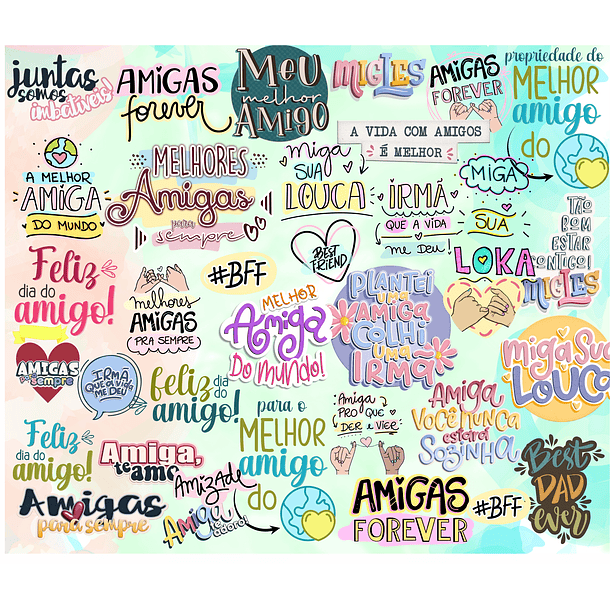 juntas
somos
imbatíveis!
AMIGAS
forever
MEU
melhor
AMIGO
MIGLES
AMIGAS
FOREVER
propriedade do
MELHOR
amigo
do
A VIDA COM AMIGOS
É MELHOR
A MELHOR
AMIGA
DO MUNDO
MELHORES
Amigas
para
sempre
miga
SUA
LOUCA
IRMÃ
QUE A VIDA
me Deu!
MIGA
SUA
LOKA
TÃO
BOM
ESTAR
CONTIGO!
MIGLES
BEST
FRIEND
Feliz
dia do
amigo!
melhores
AMIGAS
PRA SEMPRE
#BFF
MELHOR
Amiga
Do mundo!
PLANTEI
UMA
AMIGA
COLHI
UMA
IRMÃ
miga Sua
LOUCA
AMIGAS
para sempre
IRMÃ
QUE A vida
ME DEU!
feliz dia do
amigo!
para o
MELHOR
amigo
do
AMIGA
PRO QUE
DER e VIER
AMIGA
VOCÊ NUNCA
estará
SOZINHA
Feliz
dia do
amigo!
Amiga,
te amo
Amizade
Amiga
te adoro!
Amigas
para sempre
AMIGAS
FOREVER
#BFF
Best
DAD
ever